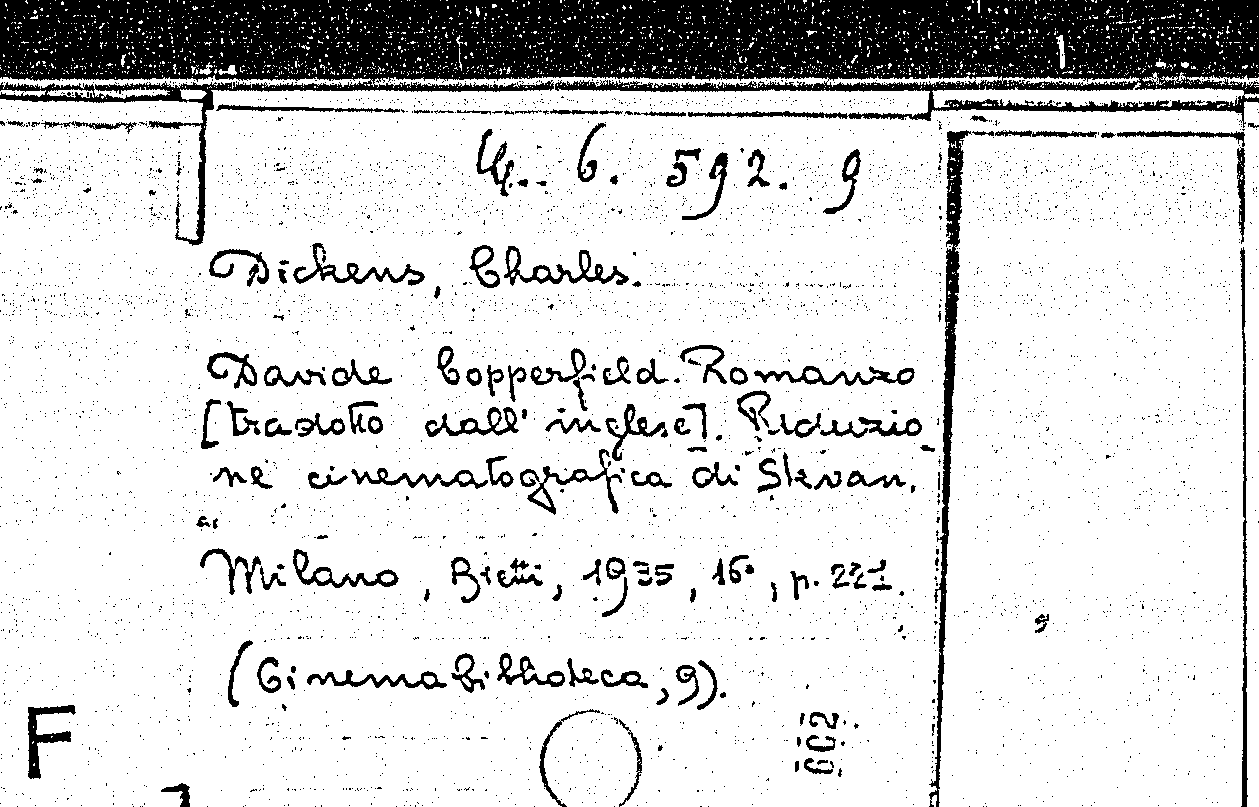 6. 592. 9
Dickens, Charles.
Davide Copperfield. Romanzo
[tradotto dall' inglese]. Riduzio_
ne cinematografica di Skvan.
Milano, Bietti, 1935, 16°, p. 221.
(Cinemabiblioteca, 9).
602
F